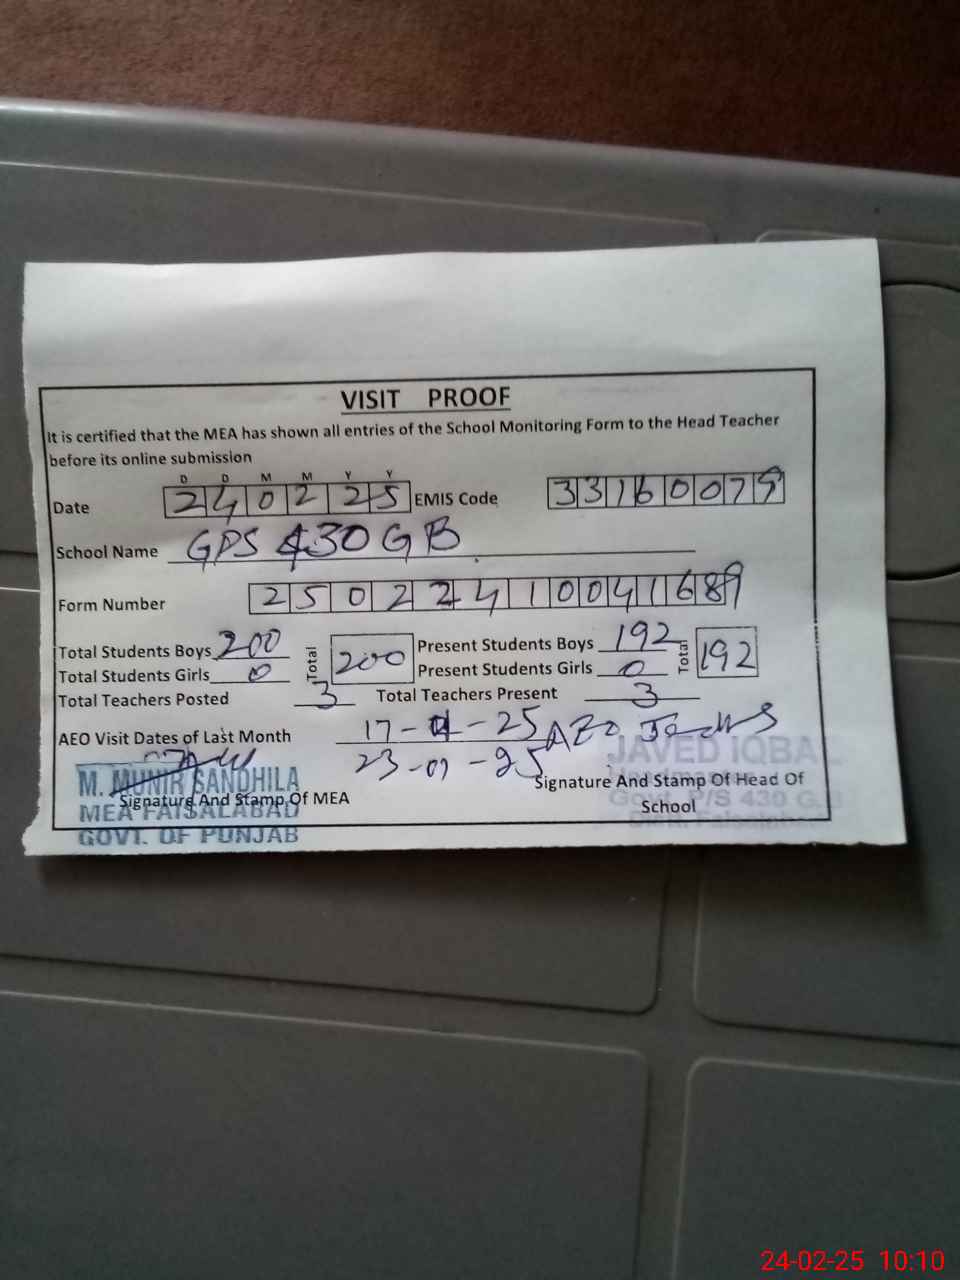 VISIT PROOF
It is certified that the MEA has shown all entries of the School Monitoring Form to the Head Teacher
before its online submission
D D M M Y Y
Date 240225 EMIS Code 33160079
School Name GPS 430 GB
Form Number 25022410041689
Total Students Boys 200 Total 200 Present Students Boys 192 Total 192
Total Students Girls 0 Present Students Girls 0
Total Teachers Posted 3 Total Teachers Present 3
AEO Visit Dates of Last Month 17-01-25 AEO
23-01-25
JAVED IQBAL
M. MUNIR SANDHILA
Signature And Stamp Of MEA
MEA FAISALABAD
GOVT. OF PUNJAB
Signature And Stamp Of Head Of
School
Govt. P/S 430 G.B
24-02-25 10:10